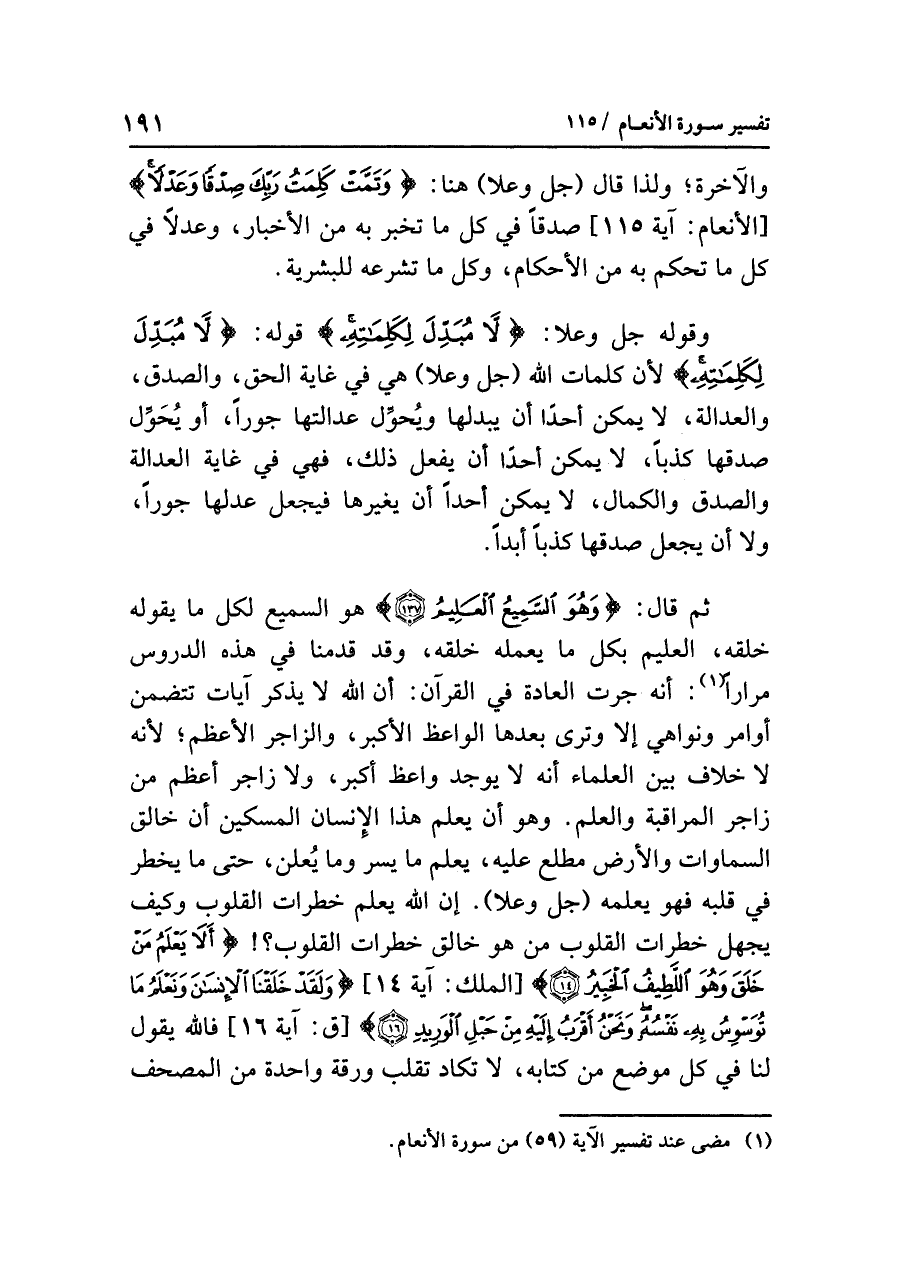 تفسير سورة الأنعام / ١١٥
١٩١
والآخرة؛ ولذا قال (جل وعلا) هنا: ﴿ وَتَمَّتْ كَلِمَتُ رَبِّكَ صِدْقًا وَعَدْلًا ۚ ﴾
[الأنعام: آية ١١٥] صدقاً في كل ما تخبر به من الأخبار، وعدلاً في
كل ما تحكم به من الأحكام، وكل ما تشرعه للبشرية.
وقوله جل وعلا: ﴿ لَّا مُبَدِّلَ لِكَلِمَـٰتِهِۦ ۚ ﴾ قوله: ﴿ لَّا مُبَدِّلَ
لِكَلِمَـٰتِهِۦ ۚ ﴾ لأن كلمات الله (جل وعلا) هي في غاية الحق، والصدق،
والعدالة، لا يمكن أحدًا أن يبدلها ويُحوِّل عدالتها جوراً، أو يُحَوِّل
صدقها كذباً، لا يمكن أحدًا أن يفعل ذلك، فهي في غاية العدالة
والصدق والكمال، لا يمكن أحداً أن يغيرها فيجعل عدلها جوراً،
ولا أن يجعل صدقها كذباً أبداً.
ثم قال: ﴿ وَهُوَ ٱلسَّمِيعُ ٱلْعَـلِيمُ ١٣٧ ﴾ هو السميع لكل ما يقوله
خلقه، العليم بكل ما يعمله خلقه، وقد قدمنا في هذه الدروس
مراراً(١): أنه جرت العادة في القرآن: أن الله لا يذكر آيات تتضمن
أوامر ونواهي إلا وترى بعدها الواعظ الأكبر، والزاجر الأعظم؛ لأنه
لا خلاف بين العلماء أنه لا يوجد واعظ أكبر، ولا زاجر أعظم من
زاجر المراقبة والعلم. وهو أن يعلم هذا الإنسان المسكين أن خالق
السماوات والأرض مطلع عليه، يعلم ما يسر وما يُعلن، حتى ما يخطر
في قلبه فهو يعلمه (جل وعلا). إن الله يعلم خطرات القلوب وكيف
يجهل خطرات القلوب من هو خالق خطرات القلوب؟! ﴿ أَلَا يَعْلَمُ مَنْ
خَلَقَ وَهُوَ ٱللَّطِيفُ ٱلْخَبِيرُ ١٤ ﴾ [الملك: آية ١٤] ﴿ وَلَقَدْ خَلَقْنَا ٱلْإِنسَـٰنَ وَنَعْلَمُ مَا
تُوَسْوِسُ بِهِۦ نَفْسُهُۥ ۖ وَنَحْنُ أَقْرَبُ إِلَيْهِ مِنْ حَبْلِ ٱلْوَرِيدِ ١٦ ﴾ [ق: آية ١٦] فالله يقول
لنا في كل موضع من كتابه، لا تكاد تقلب ورقة واحدة من المصحف
(١) مضى عند تفسير الآية (٥٩) من سورة الأنعام.